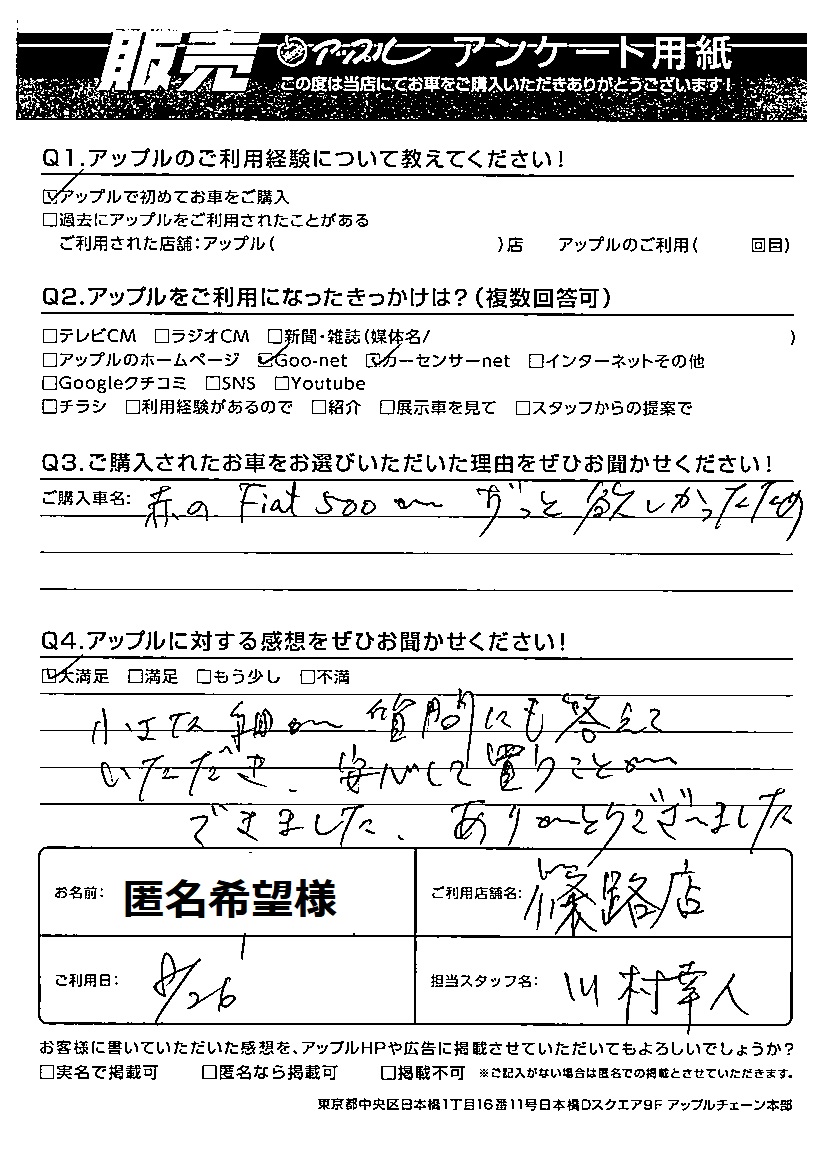 販売 アップル アンケート用紙
この度は当店にてお車をご購入いただきありがとうございます!
Q1.アップルのご利用経験について教えてください!
☑アップルで初めてお車をご購入
□過去にアップルをご利用されたことがある
ご利用された店舗:アップル( )店 アップルのご利用( 回目)
Q2.アップルをご利用になったきっかけは?(複数回答可)
□テレビCM □ラジオCM □新聞・雑誌(媒体名/ )
□アップルのホームページ ☑Goo-net ☑カーセンサーnet □インターネットその他
□Googleクチコミ □SNS □Youtube
□チラシ □利用経験があるので □紹介 □展示車を見て □スタッフからの提案で
Q3.ご購入されたお車をお選びいただいた理由をぜひお聞かせください!
ご購入車名: 赤の Fiat 500が ずっと欲しかったため
Q4.アップルに対する感想をぜひお聞かせください!
☑大満足 □満足 □もう少し □不満
小さな細かい質問にも答えて
いただき、安心して買うことが
できました、ありがとうございました
お名前: 匿名希望様 ご利用店舗名: 篠路店
ご利用日: 9/26 担当スタッフ名: 川村幸人
お客様に書いていただいた感想を、アップルHPや広告に掲載させていただいてもよろしいでしょうか?
□実名で掲載可 □匿名なら掲載可 □掲載不可 ※ご記入がない場合は匿名での掲載とさせていただきます。
東京都中央区日本橋1丁目16番11号日本橋Dスクエア9F アップルチェーン本部